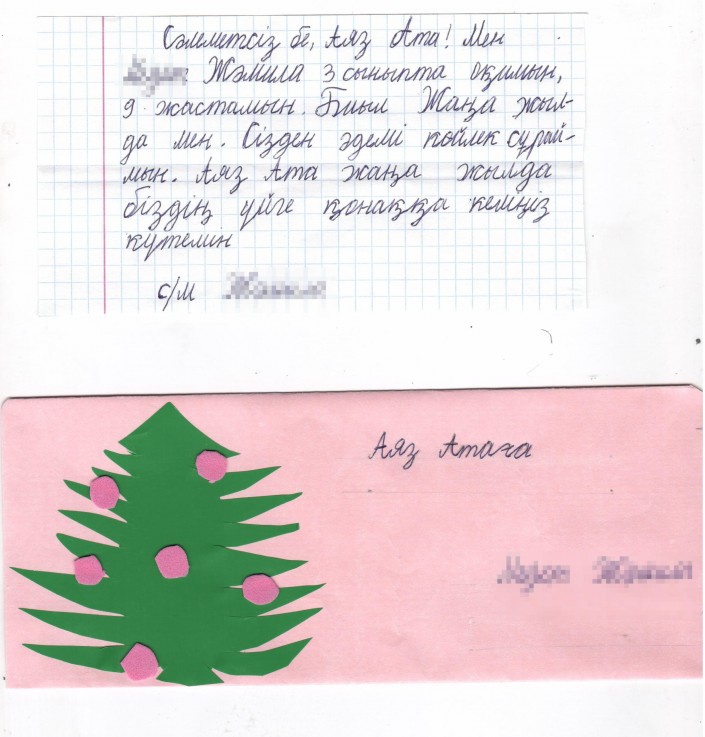 Сәлеметсіз бе, Аяз Ата! Мен
Жәмила 3 сыныпта оқимын,
9 жастамын. Биыл Жаңа жыл-
да мен. Сізден әдемі көйлек сұрай-
мын. Аяз Ата жаңа жылда
біздің үйге қонаққа келіңіз
күтемін
с/м
Аяз Атаға